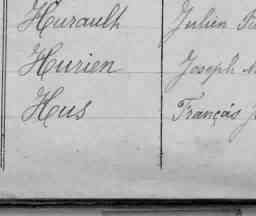 Hurault Julien
Hurien Joseph
Hus François